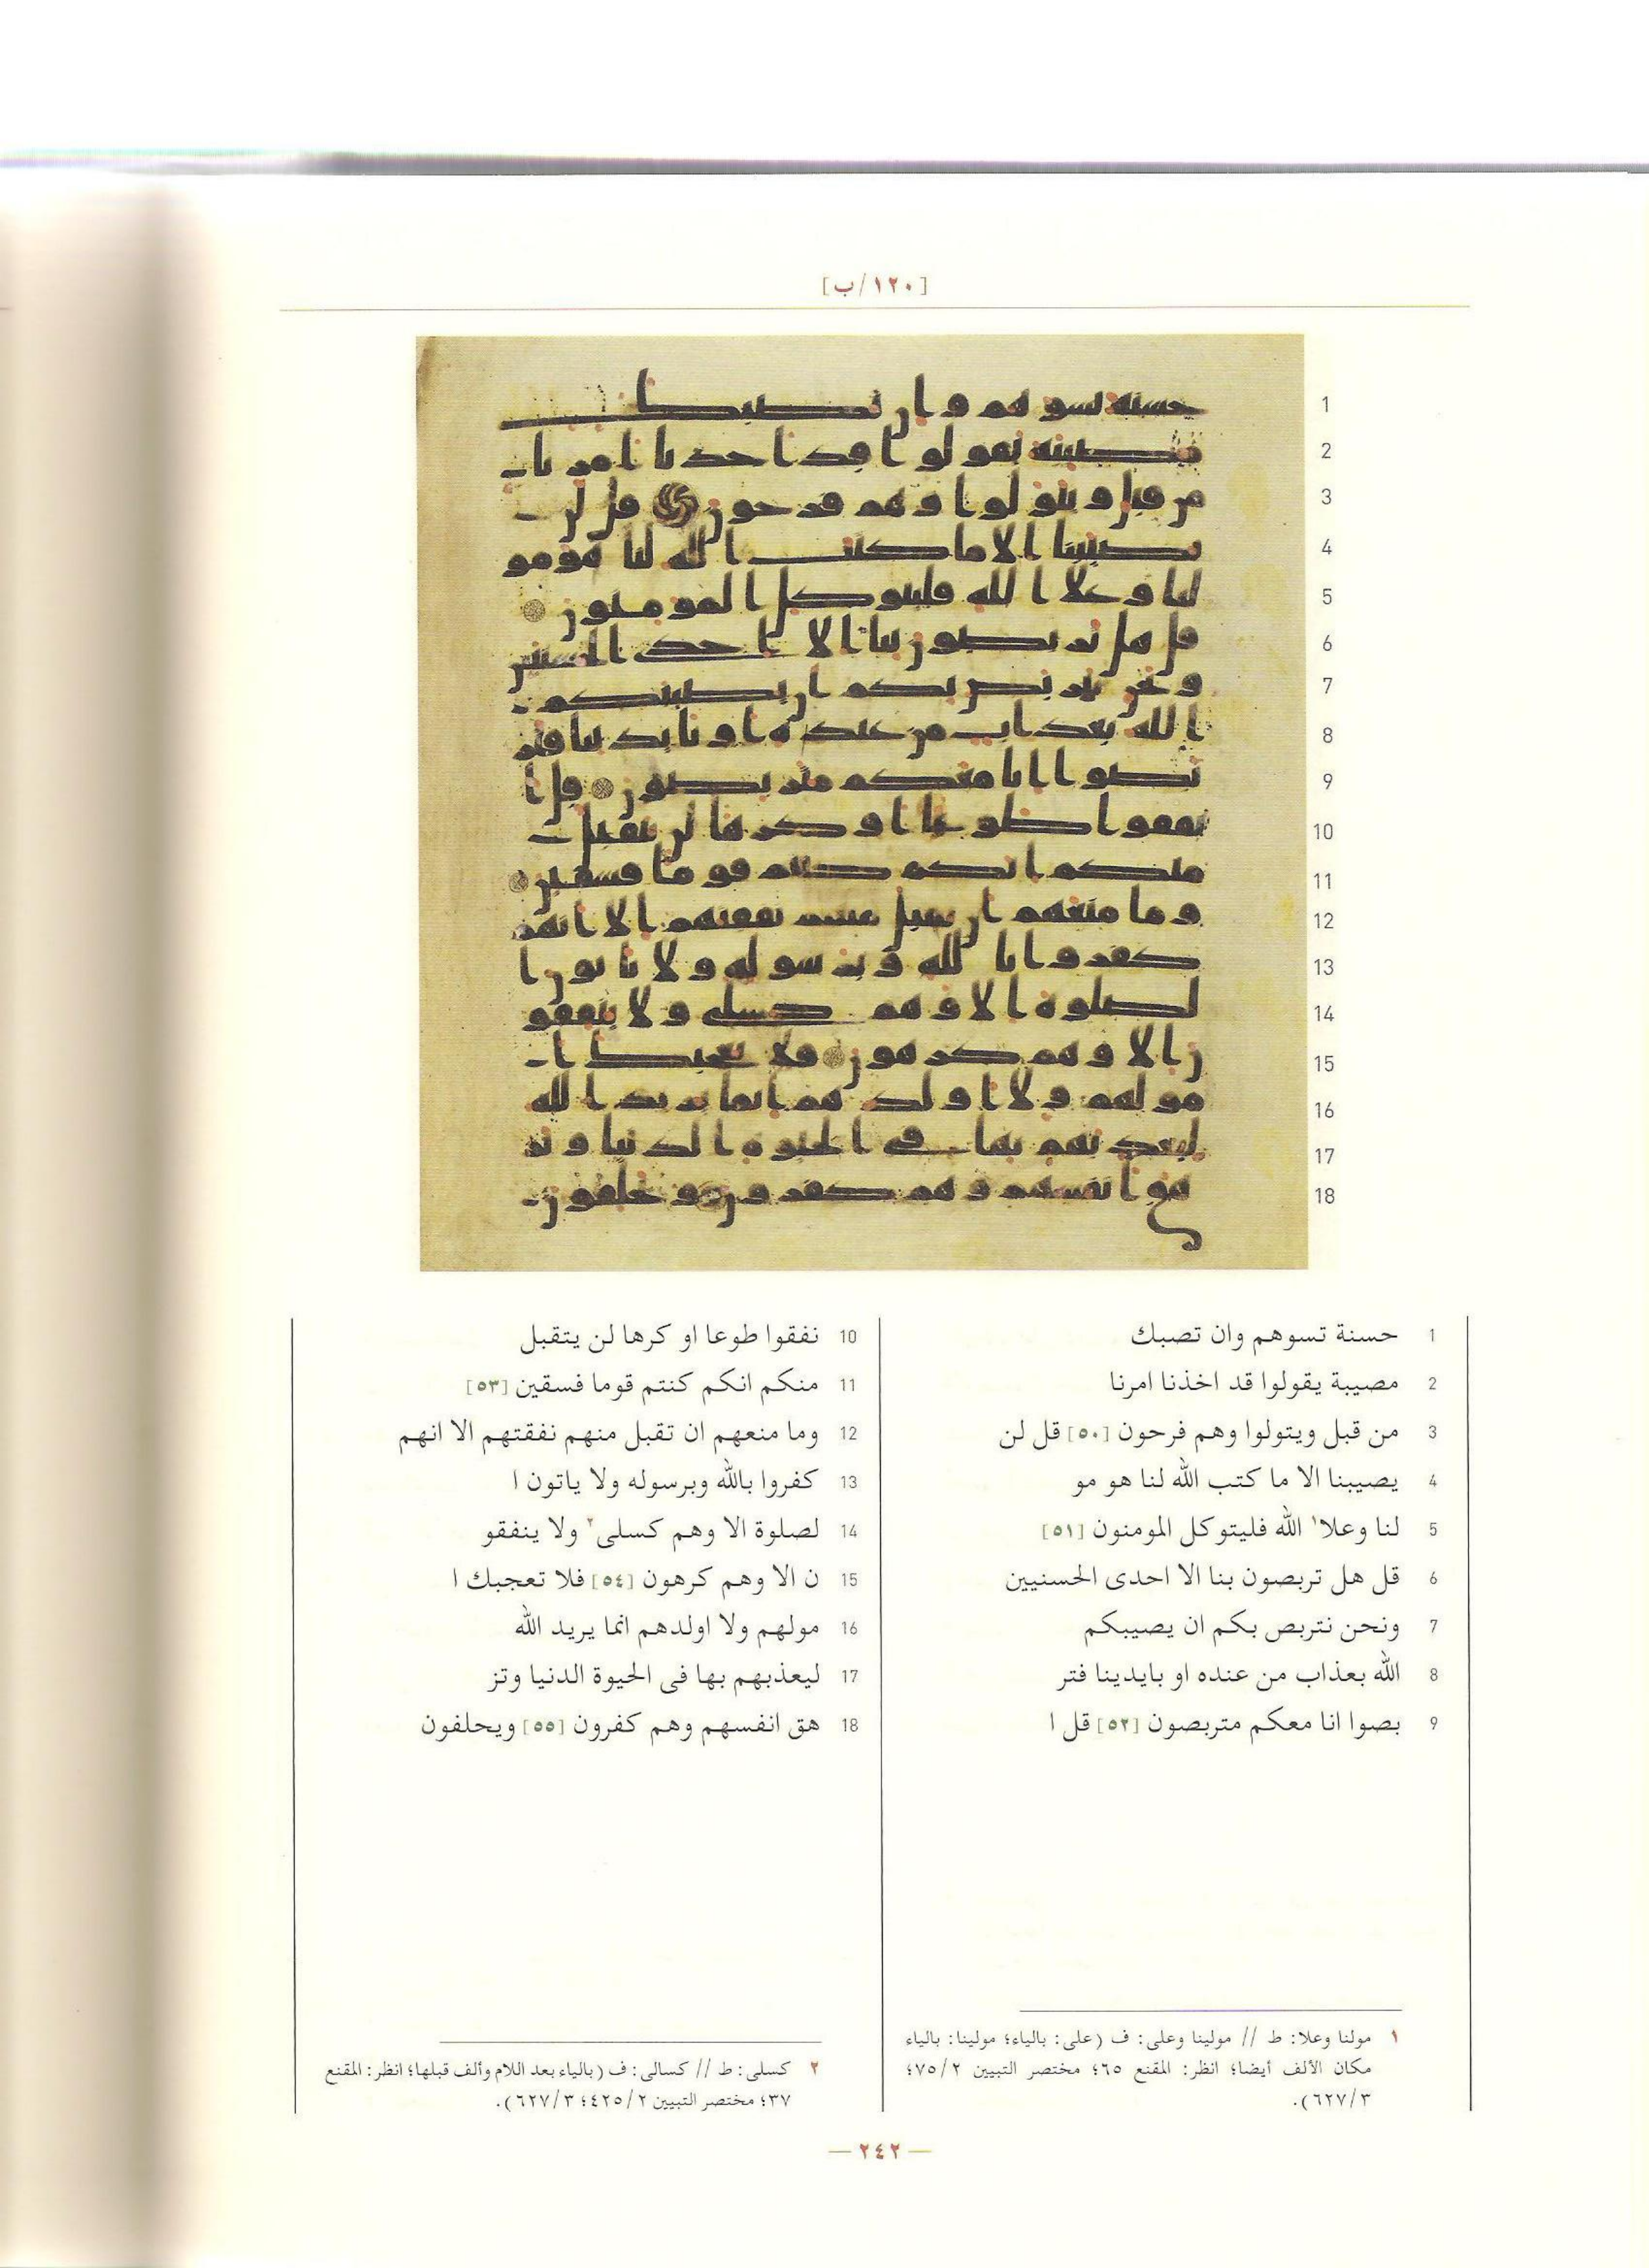 [١٢٠/ب]
1 حسنة تسوهم وان تصبك
2 مصيبة يقولوا قد اخذنا امرنا
3 من قبل ويتولوا وهم فرحون [٥٠] قل لن
4 يصيبنا الا ما كتب الله لنا هو مو
5 لنا وعلا١ الله فليتوكل المومنون [٥١]
6 قل هل تربصون بنا الا احدى الحسنيين
7 ونحن نتربص بكم ان يصيبكم
8 الله بعذاب من عنده او بايدينا فتر
9 بصوا انا معكم متربصون [٥٢] قل ا
10 نفقوا طوعا او كرها لن يتقبل
11 منكم انكم كنتم قوما فسقين [٥٣]
12 وما منعهم ان تقبل منهم نفقتهم الا انهم
13 كفروا بالله وبرسوله ولا ياتون ا
14 لصلوة الا وهم كسلى٢ ولا ينفقو
15 ن الا وهم كرهون [٥٤] فلا تعجبك ا
16 مولهم ولا اولدهم انما يريد الله
17 ليعذبهم بها فى الحيوة الدنيا وتز
18 هق انفسهم وهم كفرون [٥٥] ويحلفون
١ مولنا وعلا: ط // مولينا وعلى: ف (على: بالياء؛ مولينا: بالياء
مكان الألف أيضا؛ انظر: المقنع ٦٥؛ مختصر التبيين ٧٥/٢؛
٦٢٧/٣).
٢ كسلى: ط // كسالى: ف (بالياء بعد اللام وألف قبلها؛ انظر: المقنع
٣٧؛ مختصر التبيين ٤٢٥/٢؛ ٦٢٧/٣).
— ٢٤٢ —